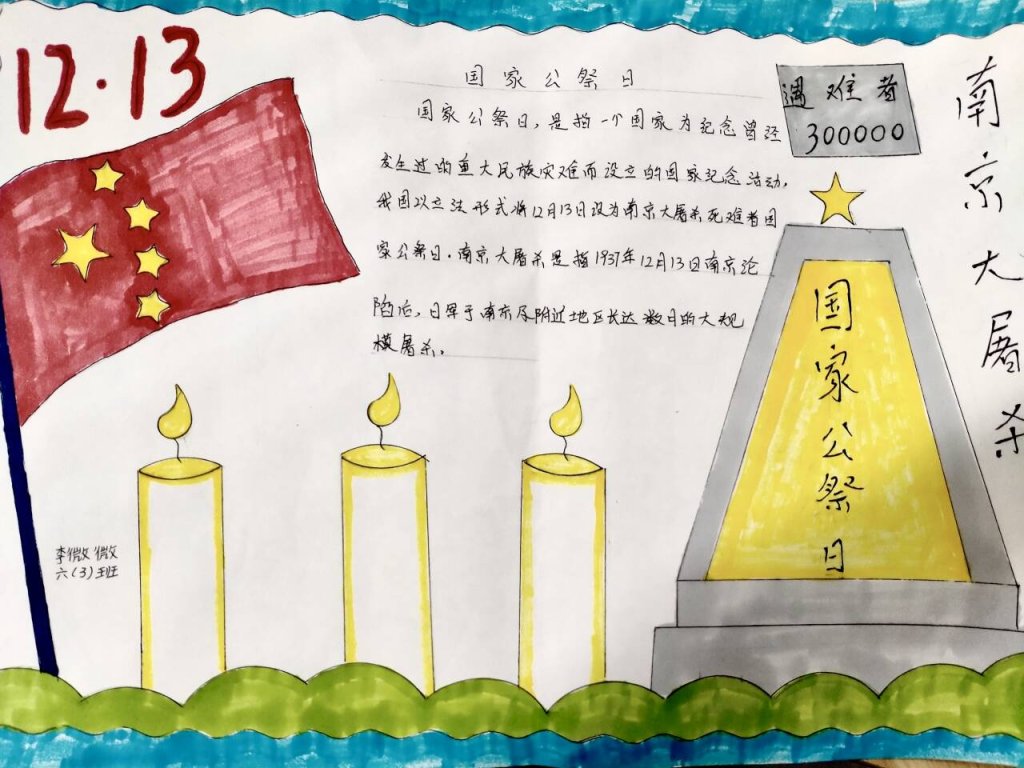 12·13
国家公祭日
国家公祭日,是指一个国家为纪念曾经
发生过的重大民族灾难而设立的国家纪念活动,
我国以立法形式将12月13日设为南京大屠杀死难者国
家公祭日.南京大屠杀是指1937年12月13日南京沦
陷后,日军于南京及附近地区长达数日的大规
模屠杀.
遇难者
300000
南京大屠杀
国家公祭日
李微微
六(3)班